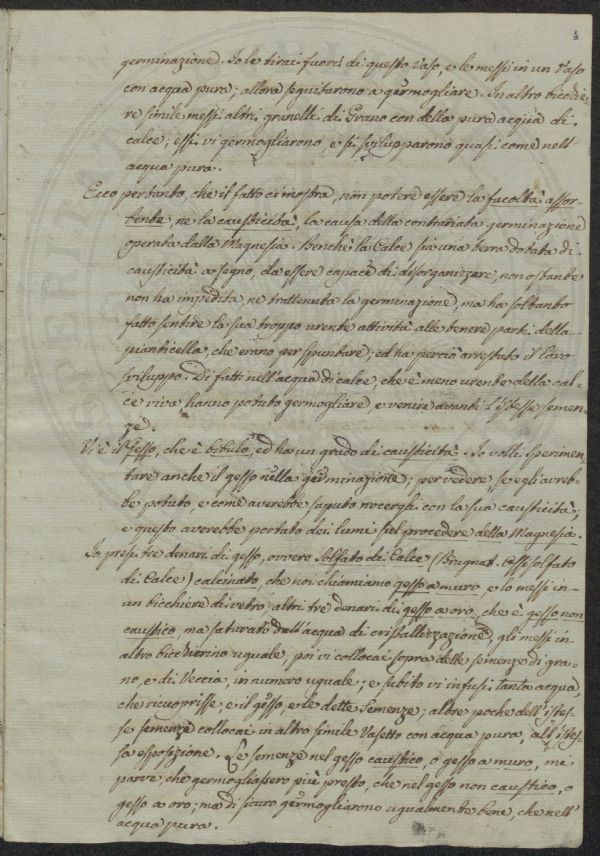 4
germinazione. Io le tirai fuori di questo Vaso, e le messi in un Vaso
con acqua pura; allora seguitarono a germogliare. In altro bicchie-
re simile messi altri granelli di Grano con della pura acqua di
calce; essi vi germogliarono, e si svilupparono quasi come nell'
acqua pura.
Ecco pertanto, che il fatto ci mostra, non potere essere la facoltà assor-
bente, ne la causticità, la causa della contrariata germinazione
operata dalla Magnesia. Benchè la Calce sia una terra dotata di
causticità a segno, da essere capace di disorganizzare, non ostante
non ha impedita, ne trattenuta la germinazione, ma ha soltanto
fatto sentire la sua troppo urente attività alle tenere parti della
pianticella, che erano per spuntare; ed ha perciò arrestato il loro
sviluppo. Di fatti nell'acqua di calce, che è meno urente della cal-
ce viva, hanno potuto germogliare, e venire avanti l'istesse semen-
ze.
Vi è il Gesso, che è bibulo, ed ha un grado di causticità. Io volli sperimen-
tare anche il gesso nella germinazione; per vedere, se egli avreb-
be potuto, e come averebbe saputo nocergli con la sua causticità;
e questo averebbe portato dei lumi sul procedere della Magnesia.
Io presi tre denari di gesso, ovvero Solfato di Calce (Brugnat. Ossisolfato
di Calce) calcinato, che noi chiamiamo gesso a muro, e lo messi in
un bicchiere di vetro; altri tre denari di gesso a oro, che è gesso non
caustico, ma saturato dall'acqua di cristallizzazione, gli messi in
altro bicchierino uguale, poi vi collocai sopra delle semenze di gra-
no, e di Veccia, in numero uguale; e subito vi infusi tanta acqua,
che ricuoprisse, e il gesso, e le dette Semenze; altre poche dell'istes-
se semenze collocai in altro simile Vasetto con acqua pura, all'istes-
sa esposizione. Le semenze nel gesso caustico, o gesso a muro, mi
parve, che germogliassero più presto, che nel gesso non caustico, o
gesso a oro; ma di sicuro germogliarono ugualmente bene, che nell'
acqua pura.